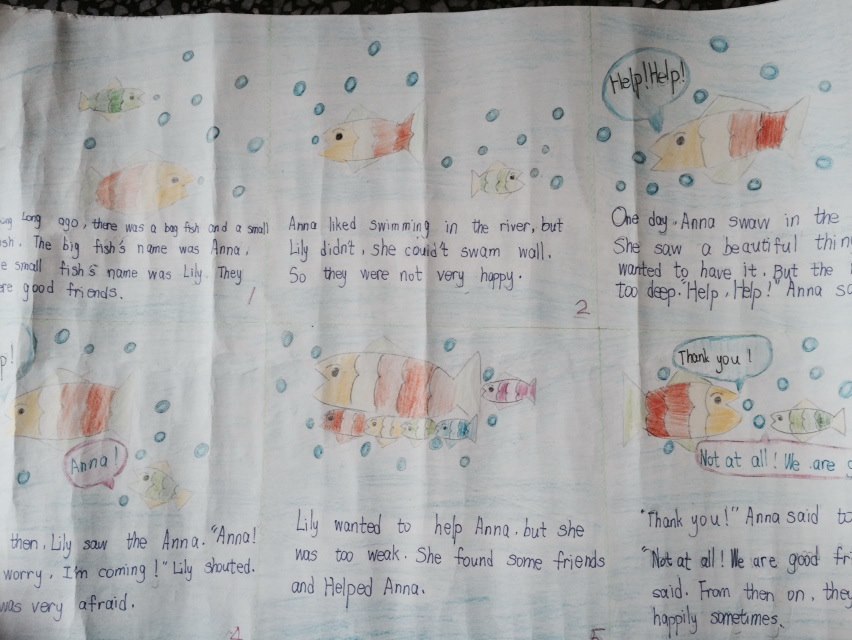 long ago, there was a bag fish and a small
The big fish's name was Anna.
small fish's name was Lily. They
good friends.
1
Anna liked swimming in the river, but
Lily didn't, she could't swam wall.
So they were not very happy.
2
Help! Help!
One day. Anna swaw in the
She saw a beautiful
wanted to have it. But the
too deep. "Help, Help!" Anna
Anna!
then, Lily saw the Anna. "Anna!
worry, I'm coming!" Lily shouted.
was very afraid.
4
Lily wanted to help Anna, but she
was too weak. She found some friends
and Helped Anna.
5
Thank you!
Not at all! We are
"Thank you!" Anna said
"Not at all! We are good
said. From then on, they
happily sometimes.